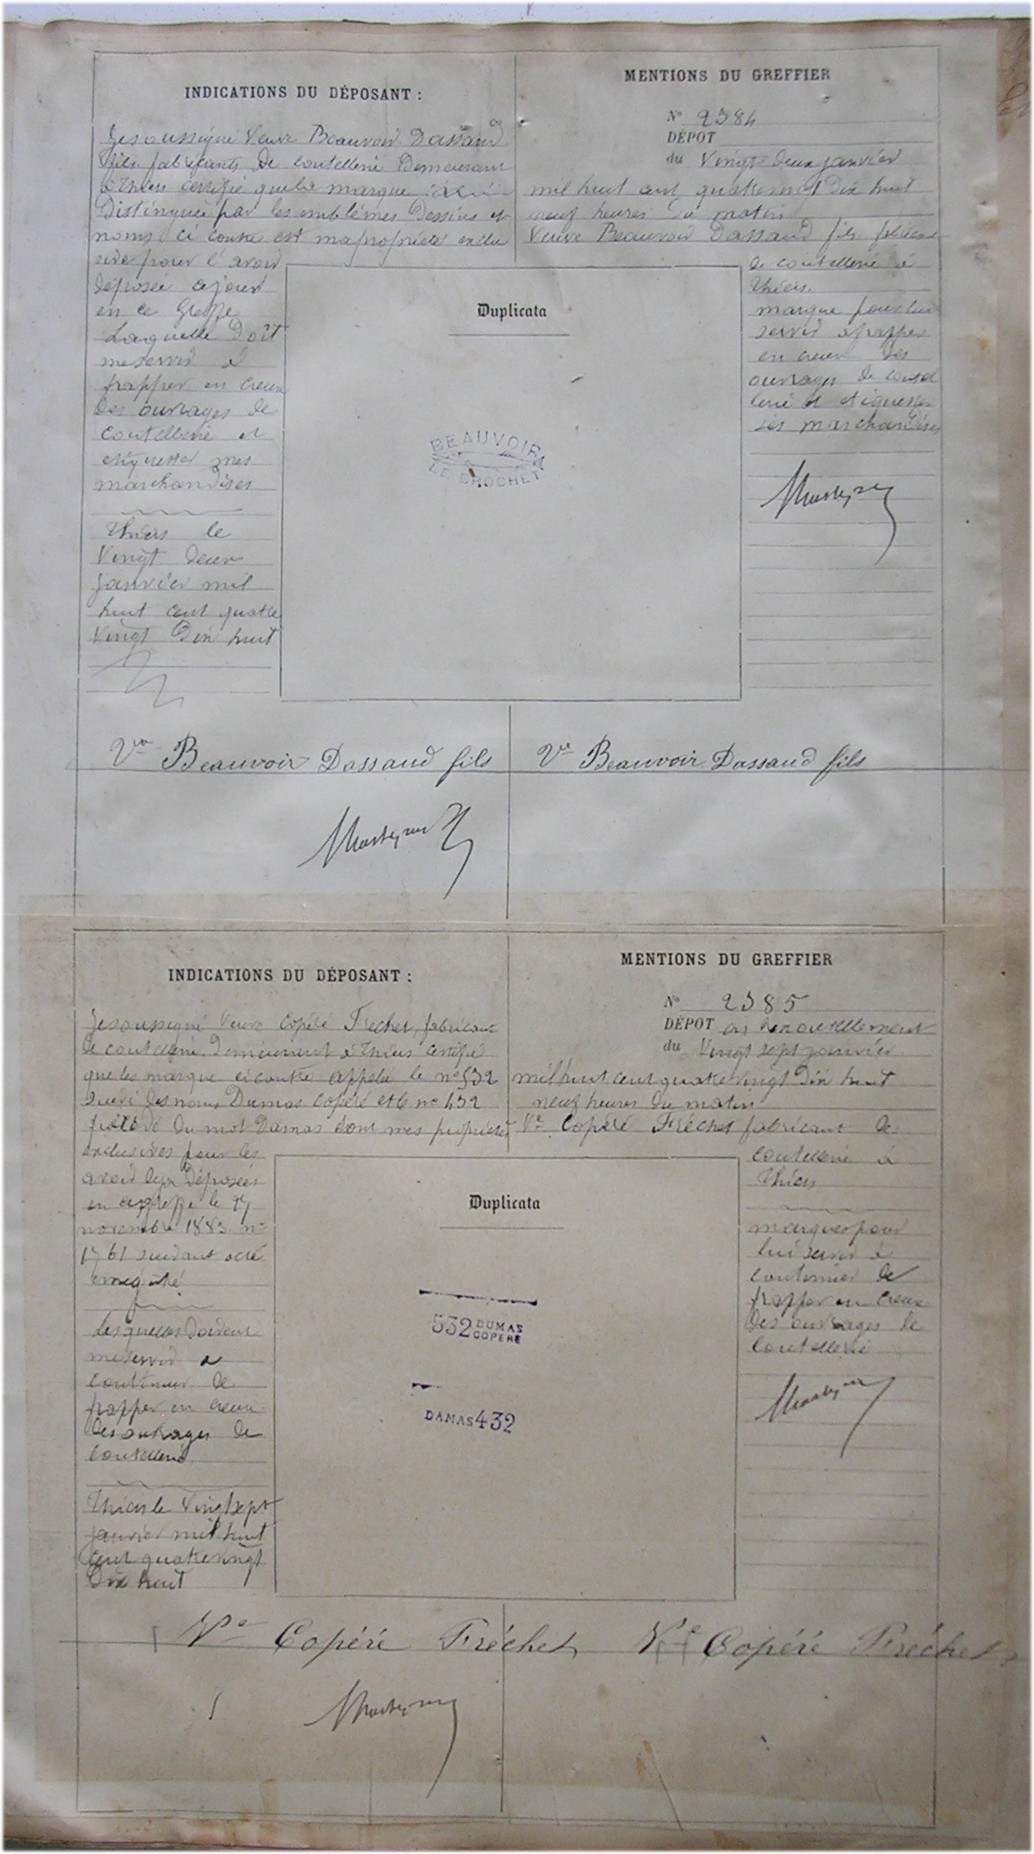 INDICATIONS DU DÉPOSANT :
Jesoussigné Veuve Beauvoir Dassaud
fils fabricants de coutellerie Demeurant
à Thiers certifie que la marque
Distinguée par les emblèmes Dessins et
noms ci contre est ma propriété exclu
sive pour l'avoir
déposée cejour
en ce Greffe
Laquelle Doit
me servir à
frapper en creux
des ouvrages de
coutellerie et
etiqueter mes
marchandises
Thiers le
Vingt deux
janvier mil
huit cent quatre
vingt Dix huit
MENTIONS DU GREFFIER
N° 2384
DÉPOT
du Vingt-deux janvier
mil huit cent quatrevingt Dix huit
neuf heures du matin
Veuve Beauvoir Dassaud fils fabricant
de coutellerie à
Thiers
marque pour lui
servir a frapper
en creux des
ouvrages de coutel
lerie et etiqueter
ses marchandises
Duplicata
BEAUVOIR
LE BROCHET
Vve Beauvoir Dassaud fils
Ve Beauvoir Dassaud fils
INDICATIONS DU DÉPOSANT :
Jesoussigné Veuve Copéré Fréchet, fabricant
de coutellerie Demeurant à Thiers certifie
que les marque ci contre appelée le n° 532
suivi des noms Dumas Copéré et le n° 432
précédé du mot Damas sont mes propriétés
exclusives pour les
avoir deja Déposées
en ce greffe le 27
novembre 1883 n°
1761 suivant acte
enregistré
Lesquelles Doivent
me servir a
continuer de
frapper en creux
des ouvrages de
coutellerie
Thiers le Vingt sept
janvier mil huit
cent quatrevingt
Dix huit
MENTIONS DU GREFFIER
N° 2385
DÉPOT en Renouvellement
du Vingt sept janvier
mil huit cent quatre vingt Dix huit
neuf heures du matin
Ve Copéré Fréchet fabricant de
coutellerie à
Thiers
marques pour
lui servir à
continuer de
frapper en creux
des ouvrages de
coutellerie
Duplicata
532 DUMAS
COPERE
DAMAS 432
Ve Copéré Fréchet
Ve Copéré Fréchet